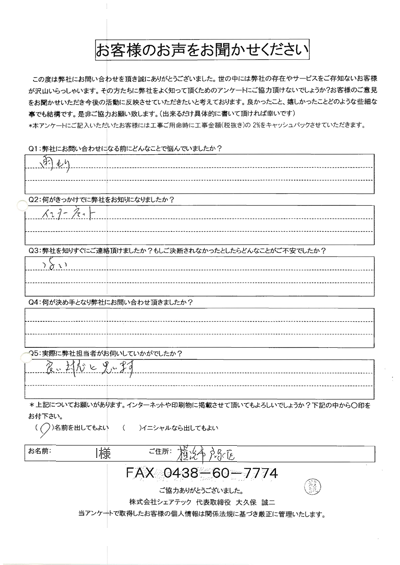 お客様のお声をお聞かせください
この度は弊社にお問い合わせを頂き誠にありがとうございました。世の中には弊社の存在やサービスをご存知ないお客様
が沢山いらっしゃいます。その方たちに弊社をよく知って頂くためのアンケートにご協力頂けないでしょうか？お客様のご意見
をお聞かせいただき今後の活動に反映させていただきたいと考えております。良かったこと、嬉しかったことどのような些細な
事でも結構です。是非ご協力お願い致します。(出来るだけ具体的に書いて頂ければ幸いです)
*本アンケートにご記入いただいたお客様には工事ご用命時に工事金額(税抜き)の2%をキャッシュバックさせていただきます。
Q1:弊社にお問い合わせになる前にどんなことで悩んでいましたか？
雨もり
Q2:何がきっかけでに弊社をお知りになりましたか？
インターネット
Q3:弊社を知りすぐにご連絡頂けましたか？もしご決断されなかったとしたらどんなことがご不安でしたか？
はい
Q4:何が決め手となり弊社にお問い合わせ頂きましたか？
Q5:実際に弊社担当者がお伺いしていかがでしたか？
良い対応と思います
*上記についてお願いがあります。インターネットや印刷物に掲載させて頂いてもよろしいでしょうか？下記の中から〇印を
お付下さい。
(〇)名前を出してもよい ( )イニシャルなら出してもよい
お名前: I様 ご住所: 横浜市戸塚区
FAX 0438-60-7774
ご協力ありがとうございました。
株式会社シェアテック 代表取締役 大久保 誠二
当アンケートで取得したお客様の個人情報は関係法規に基づき厳正に管理いたします。